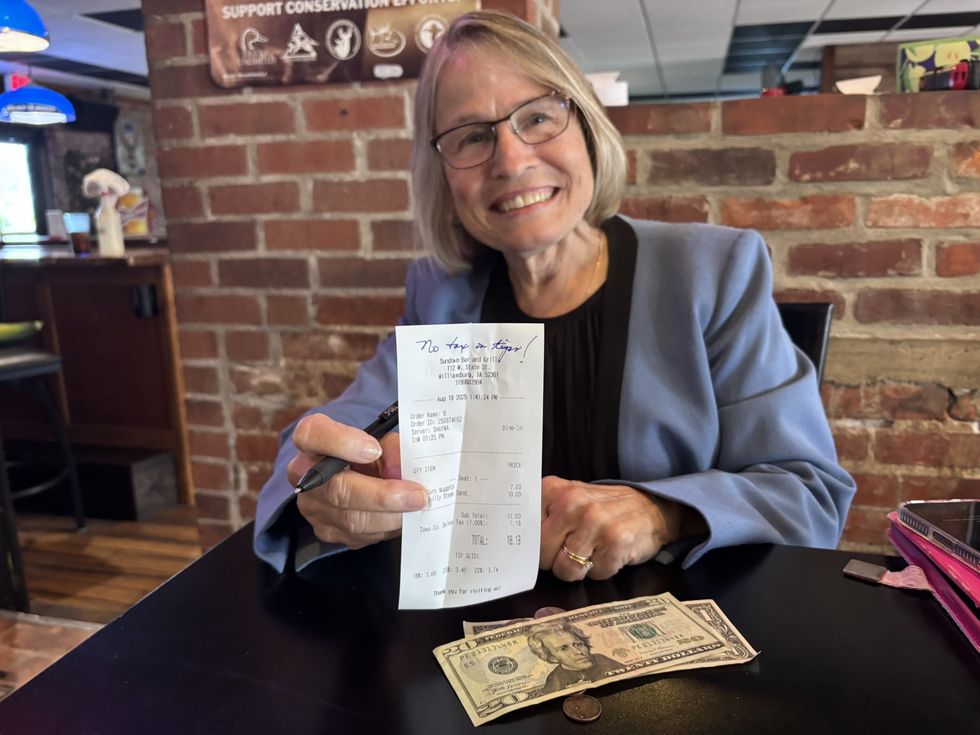 SUPPORT CONSERVATION EFFORTS
No tax on tips!
Sundown Bar and Grill
112 W. State St.
Williamsburg, IA 52361
Aug 18 2025 1:41:24 PM
Order Name: 9
Order ID:
Server: SHAYNA
Dine-In
In@ 01:25 PM
QTY ITEM PRICE
Seat: 1
Nuggets 7.00
Philly Steak Sand. 10.00
Sub Total: 17.00
Iowa Co. Sales Tax (7.00%): 1.19
TOTAL: 18.19
TIP GUIDE
18%: 3.06 20%: 3.40 22%: 3.74
Thank you for visiting us!
20